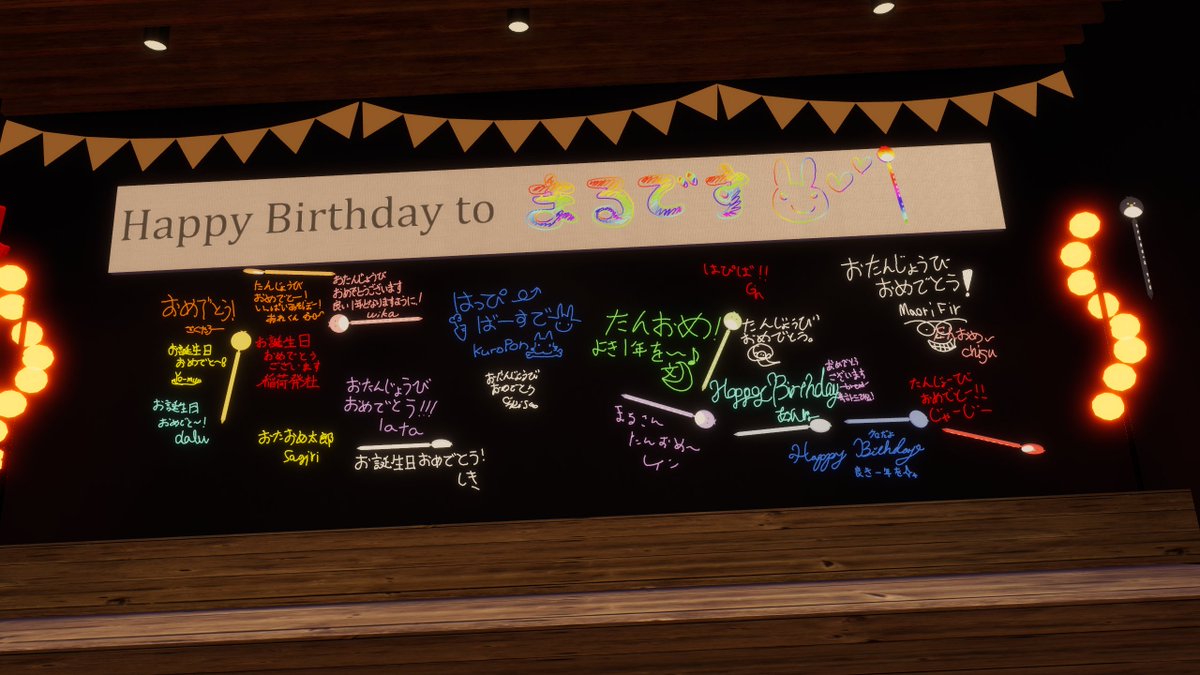 Happy Birthday to まるです
おめでとう!
たんじょうび
おめでとー!
おたんじょうび
おめでとうございます
良い1年となりますように!
wika
お誕生日
おめでと〜!
お誕生日
おめでとう
ございます
お誕生日
おめでと〜!
dalu
おたおめ太郎
Sagiri
おたんじょうび
おめでとう!!!
lata
お誕生日おめでとう!
しき
はっぴー
ばーすでー
KuroPon
おたんじょうび
おめでとう
はぴば!!
たんおめ!
よき1年を〜
たんじょうび
おめでとう。
Happy Birthday
おめでとう
ございます
まるさん
たんおめ〜
レイン
Happy Birthday
良き一年を
おたんじょうび
おめでとう!
MaoriFir
おめ
chisu
たんじょーび
おめでとー!!
じゃーじー